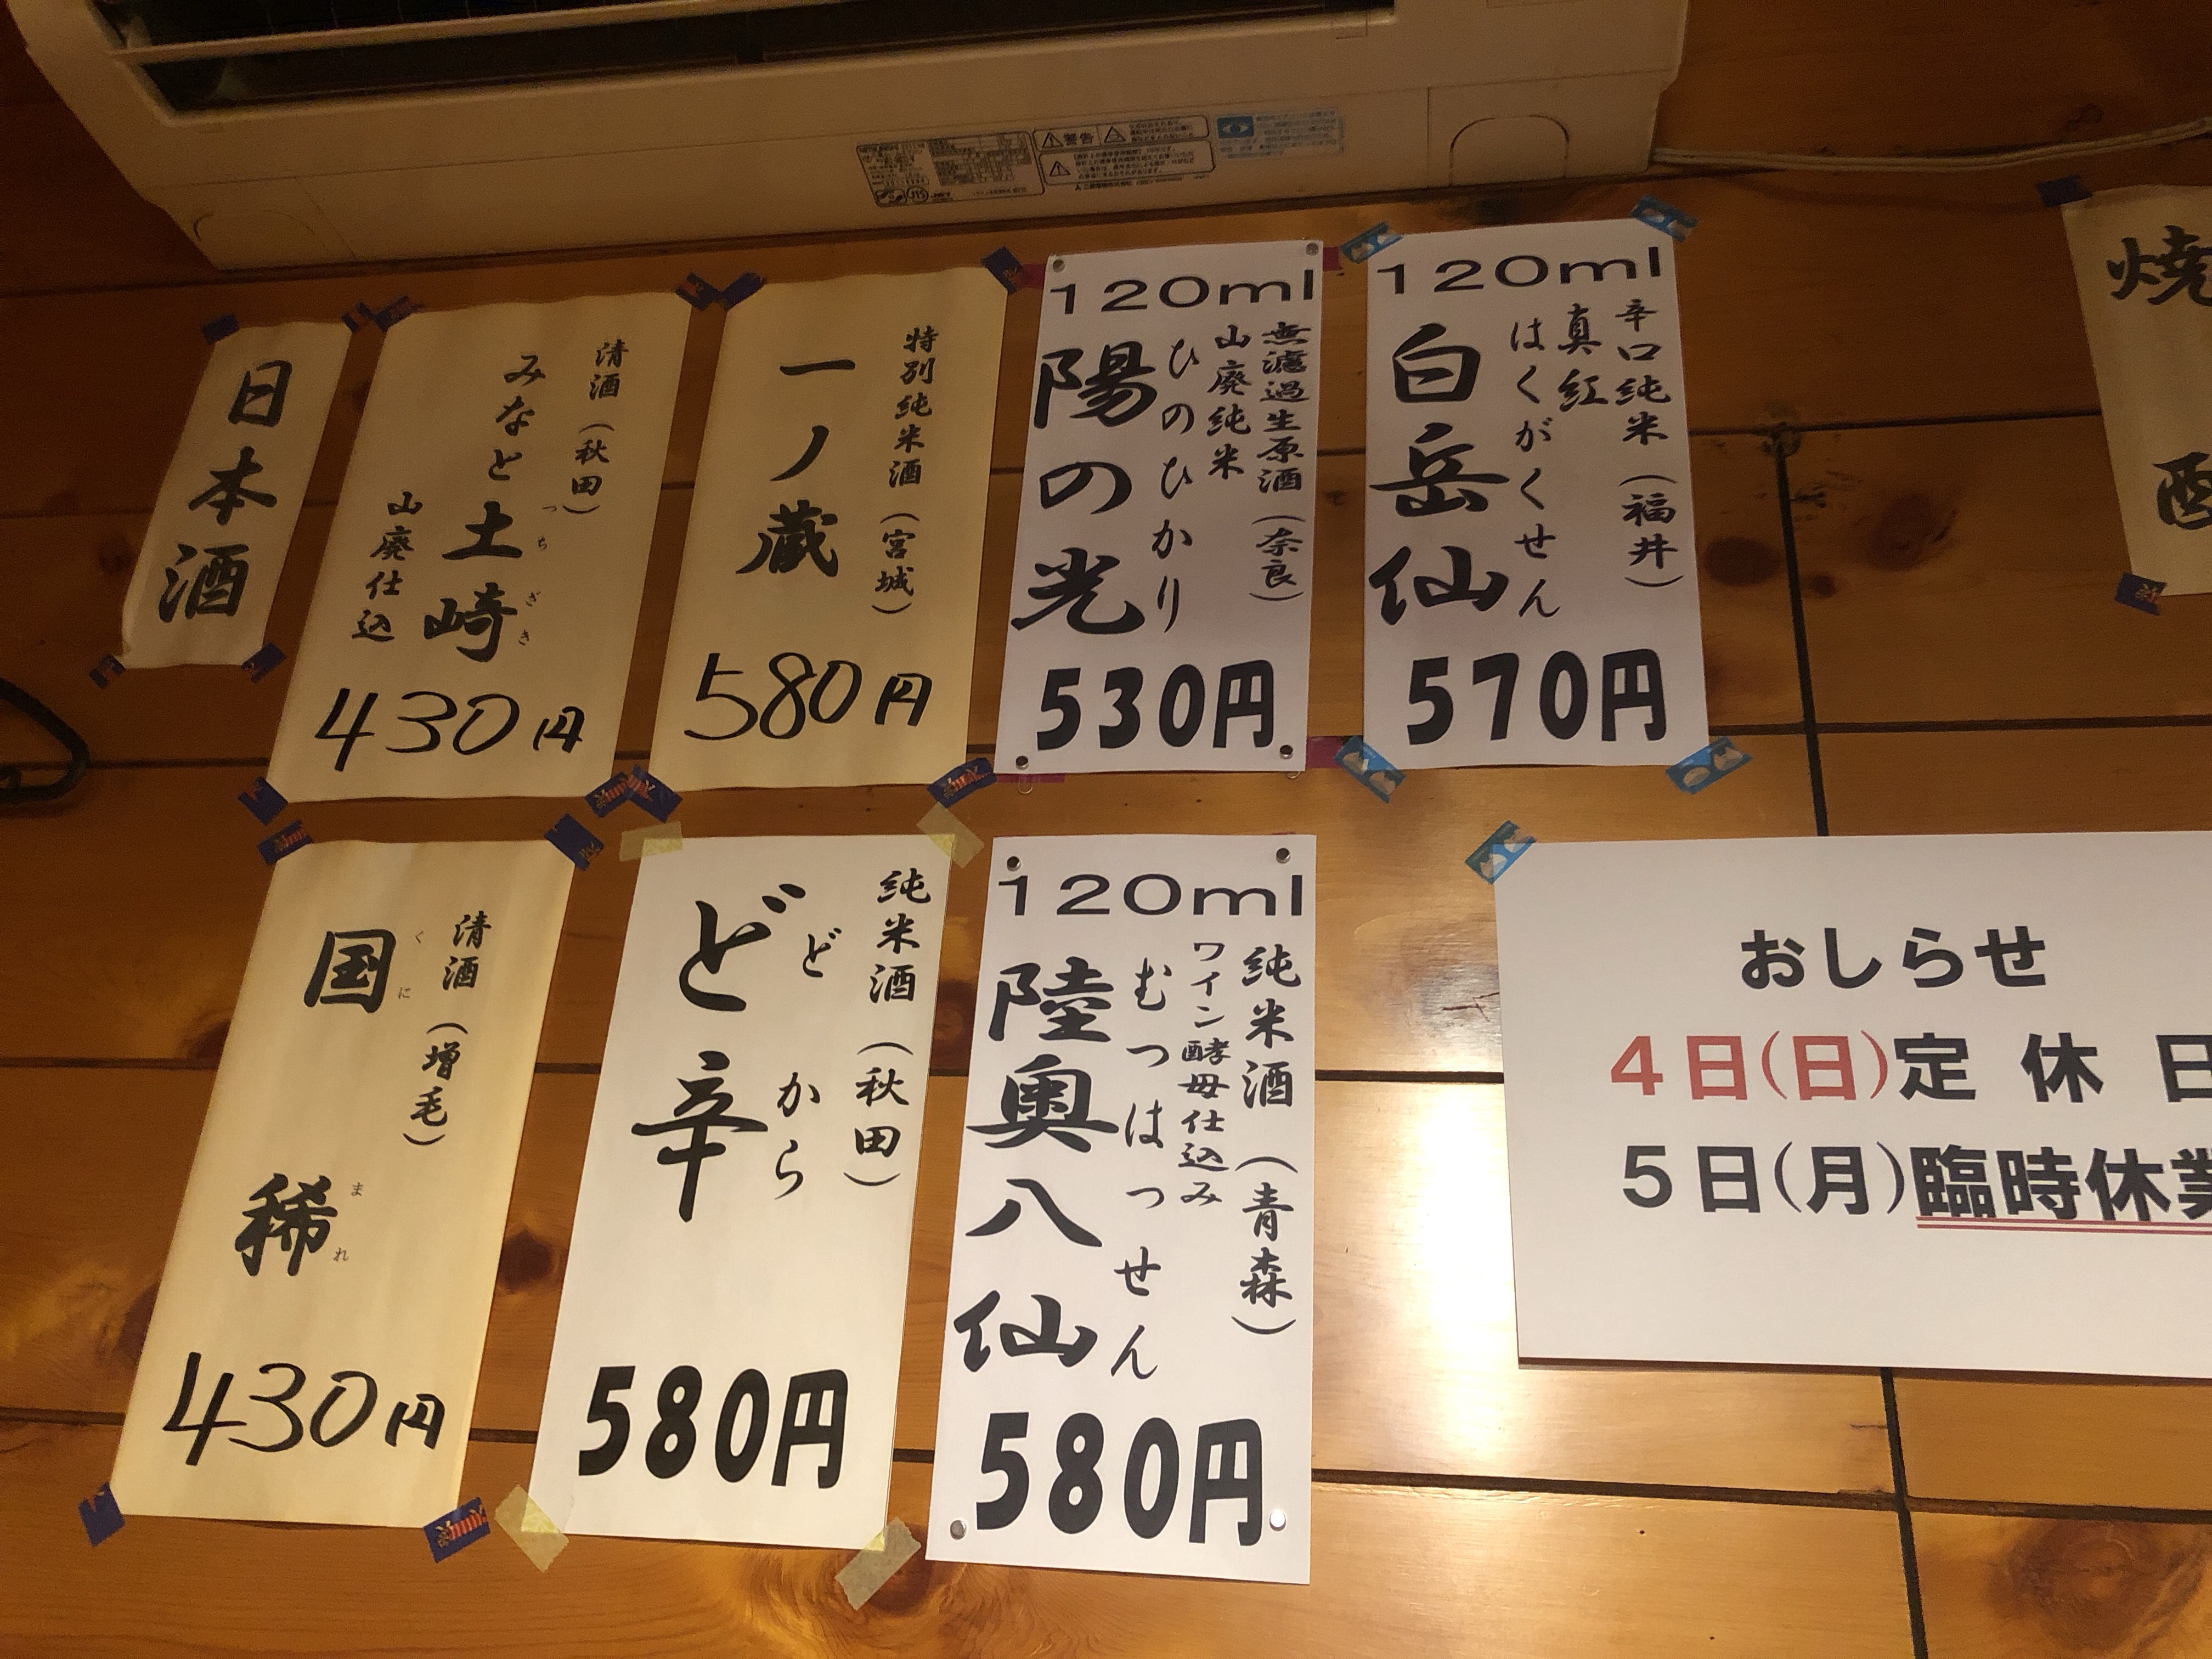 警告
日本酒
清酒（秋田）
みなと
土崎
つちざき
山廃仕込
430円
特別純米酒（宮城）
一ノ蔵
580円
120ml
無濾過生原酒（奈良）
山廃純米
ひのひかり
陽の光
530円
120ml
辛口純米（福井）
真紅
はくがくせん
白岳仙
570円
焼
酎
清酒（増毛）
国稀
くにまれ
430円
純米酒（秋田）
どから
ど辛
580円
120ml
純米酒（青森）
ワイン酵母仕込み
むつはっせん
陸奥八仙
580円
おしらせ
4日(日)定休日
5日(月)臨時休業